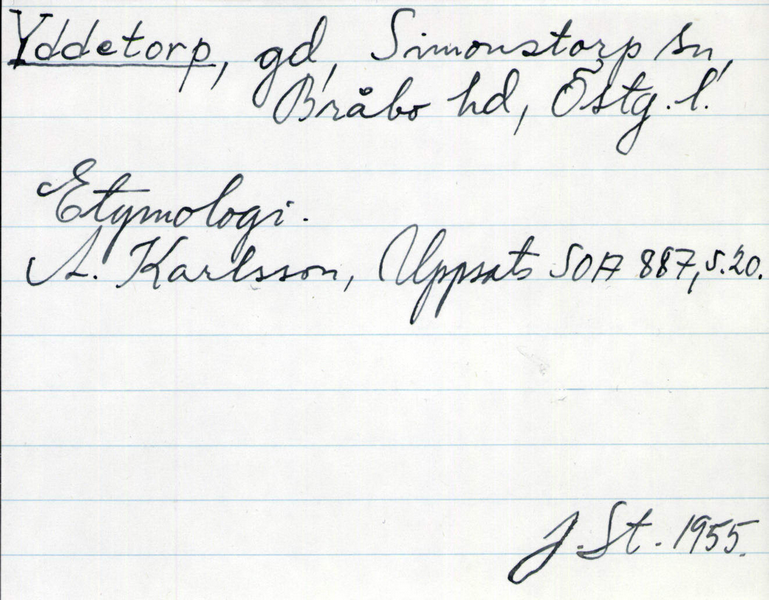 Yddetorp, gd, Simonstorp sn,
Bråbo hd, Östg. l.
Etymologi.
A. Karlsson, Uppsats SOA 887, s. 20.
J. St. 1955.